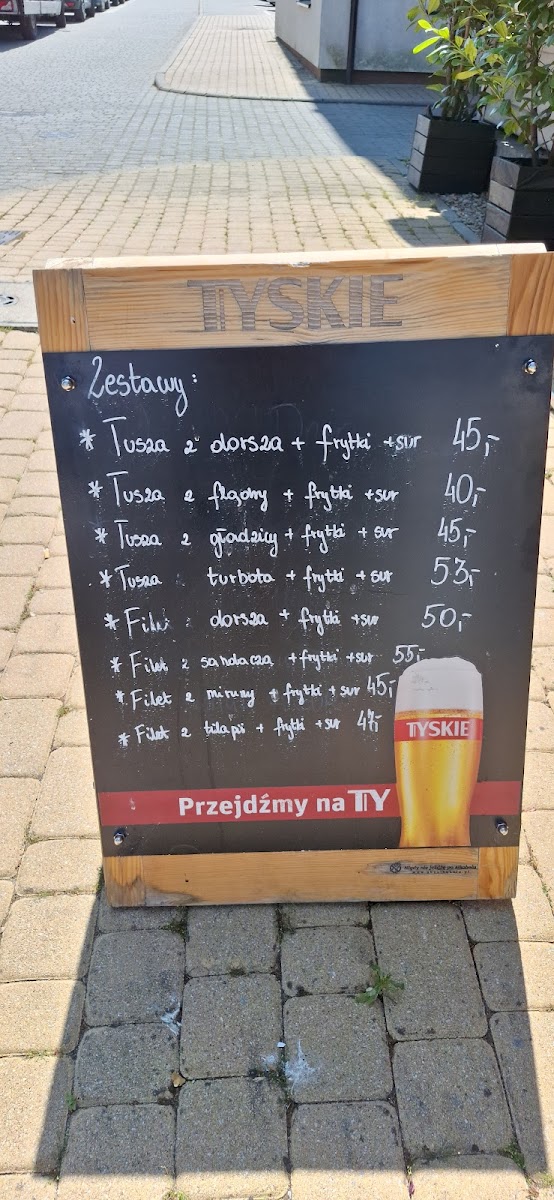 TYSKIE
Zestawy:
* Tusza z dorsza + frytki + sur 45,-
* Tusza z flądry + frytki + sur 40,-
* Tusza z gładzicy + frytki + sur 45,-
* Tusza turbota + frytki + sur 53,-
* Filet dorsza + frytki + sur 50,-
* Filet z sandacza + frytki + sur 55,-
* Filet z miruny + frytki + sur 45,-
* Filet z tilapi + frytki + sur 47,-
TYSKIE
Przejdźmy na TY